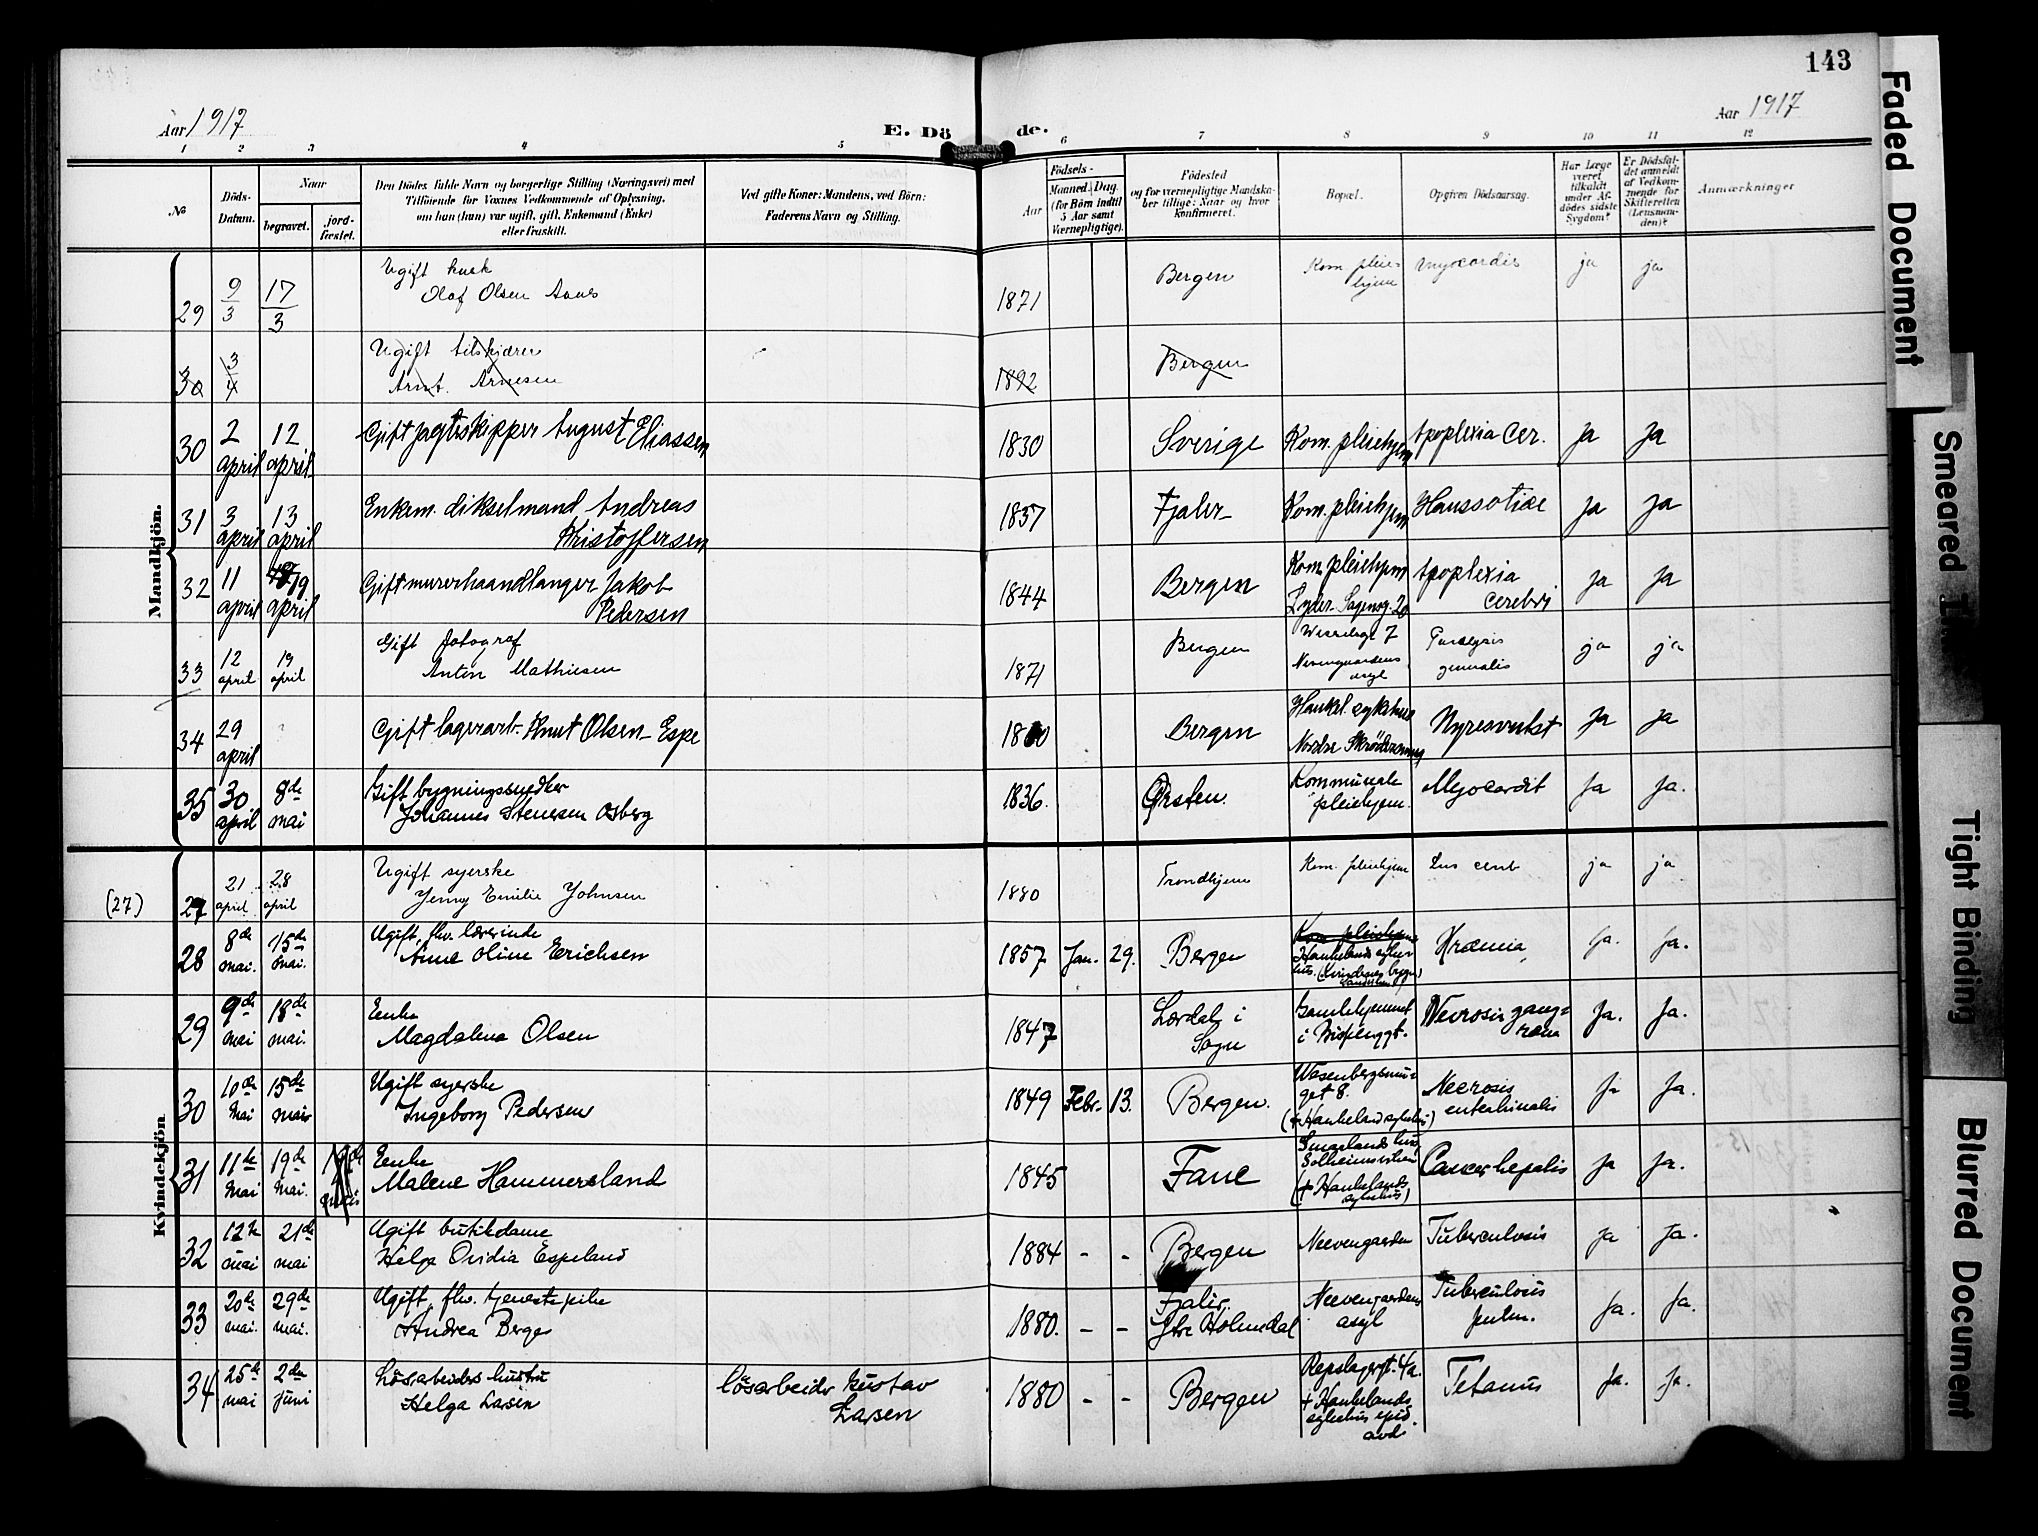 143
Aar 1917
E. Dö
de.
Aar 1917
1 2 3 4 5 6 7 8 9 10 11 12
№
Döds-
Datum.
Naar
begravet.
jord-
fæstet.
Den Dödes fulde Navn og borgerlige Stilling (Næringsvei) med
Tilföiende for Voxnes Vedkommende af Oplysning,
om han (hun) var ugift, gift, Enkemand (Enke)
eller fraskilt.
Ved gifte Koner: Mandens, ved Börn:
Faderens Navn og Stilling.
Födsels-
Aar
Maaned. Dag.
(for Börn indtil
5 Aar samt
Værnepligtige).
Födested
og for værnepligtige Mandska-
ber tillige: Naar og hvor
konfirmeret.
Bopæl.
Opgiven Dödsaarsag.
Har Læge
været
tilkaldt
under Af-
dödes sidste
Sygdom?
Er Dödsfal-
det anmeldt
af Vedkom-
mende for
Skifteretten
(Lensman-
den)?
Anmærkninger
Mandkjön.
29 9/3 17/3 Ugift kusk
Olaf Olsen 1871 Bergen Kom. pleie-
hjem Myocardit ja ja
30 3/4 Ugift tilskjærer
Arnt. Arnesen 1892 Bergen
30 2 april 12 april Gift jagtskipper August Eliassen 1830 Sverige Kom. pleiehjem Apoplexia cer. Ja Ja
31 3 april 13 april Enkem. dikselmand Andreas
Kristoffersen 1837 Fjaler Kom. pleiehjem Ja Ja
32 11 april 19 april Gift murerhaandlanger Jakob
Pedersen 1844 Bergen Kom. pleiehjem
Lyder Sagensg. 20 Apoplexia
cerebri Ja Ja
33 12 april 19 april Gift fotograf
Anton Mathiesen 1871 Bergen 7
Neevengaardens
asyl Paralysis
generalis ja ja
34 29 april Gift lagerarb. Knut Olsen Espe Bergen Haukel. sykehus
Nordre Nyresvulst Ja Ja
35 30 april 8de mai Gift bygningssnedker
Johannes Stenersen Osberg 1836. Ørsten. Kommunale
pleiehjem. Myocardit Ja Ja.
Kvindekjön
(27) 27 21 april 28 april Ugift syerske
Jenny Emilie Johnsen 1880 Trondhjem Kom. pleiehjem Lus cent ja ja
28 8de mai. 15de mai. Ugift, fhv. lærerinde
Anne Oline Erichsen 1857 Jan. 29. Bergen Kom pleiehjem
Haukelands syke-
hus. Uræmia, Ja. Ja.
29 9de mai 18de mai. Enke
Magdalena Olsen 1847 Lærdal i
Sogn Gamlehjemmet
i Necrosis gang-
ræna Ja. Ja.
30 10de mai 15de mai Ugift syerske
Ingeborg Pedersen 1849 Febr. 13. Bergen. Wesenbergsmu-
get 8.
(+ Haukeland sykehus) Necrosis Ja Ja.
31 11te mai 19de mai. Enke
Malene Hammersland 1845 Fane
Solheimsviken
(+ Haukelands
sykehus) Cancer hepatis Ja Ja.
32 12te mai 21de mai Ugift butikdame
Helga Ovidia Espeland 1884 - - Bergen Neevengaarden Tuberculosis Ja Ja.
33 20de mai. 29de mai. Ugift, fhv. tjenestepike
Andrea Berge 1880. - - Fjaler.
Ytre Holmedal Neevengaardens
asyl Tuberculosis
pulm. Ja. Ja.
34 25de mai 2den juni Lösarbeiders hustru
Helga Larsen lösarbeider Gustav
Larsen 1880 - - Bergen Repslagergt. 4a.
+ Haukelands
sykehus epid.
avd. Tetanus Ja. Ja.
Faded Document
Smeared
Tight Binding
Blurred Document